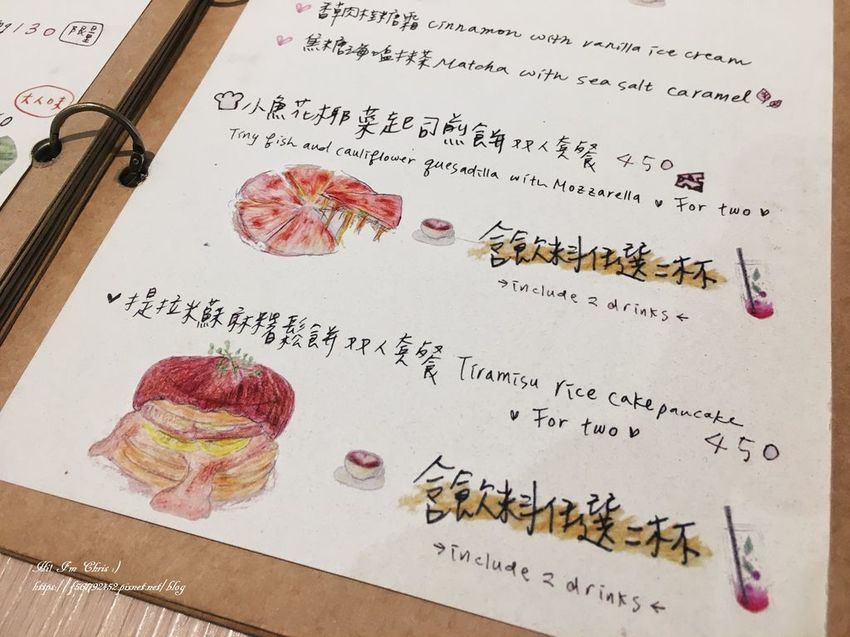 130 限量
大人口味
香草肉桂糖霜 cinnamon with vanilla ice cream
焦糖海塩抹茶 Matcha with sea salt caramel
小魚花椰菜起司煎餅双人套餐 450
Tiny fish and cauliflower quesadilla with Mozzarella For two
含飲料任選二杯
→include 2 drinks←
提拉米蘇麻糬鬆餅双人套餐 Tiramisu rice cake pancake
For two 450
含飲料任選二杯
→include 2 drinks←
Hi! I'm Chris :)